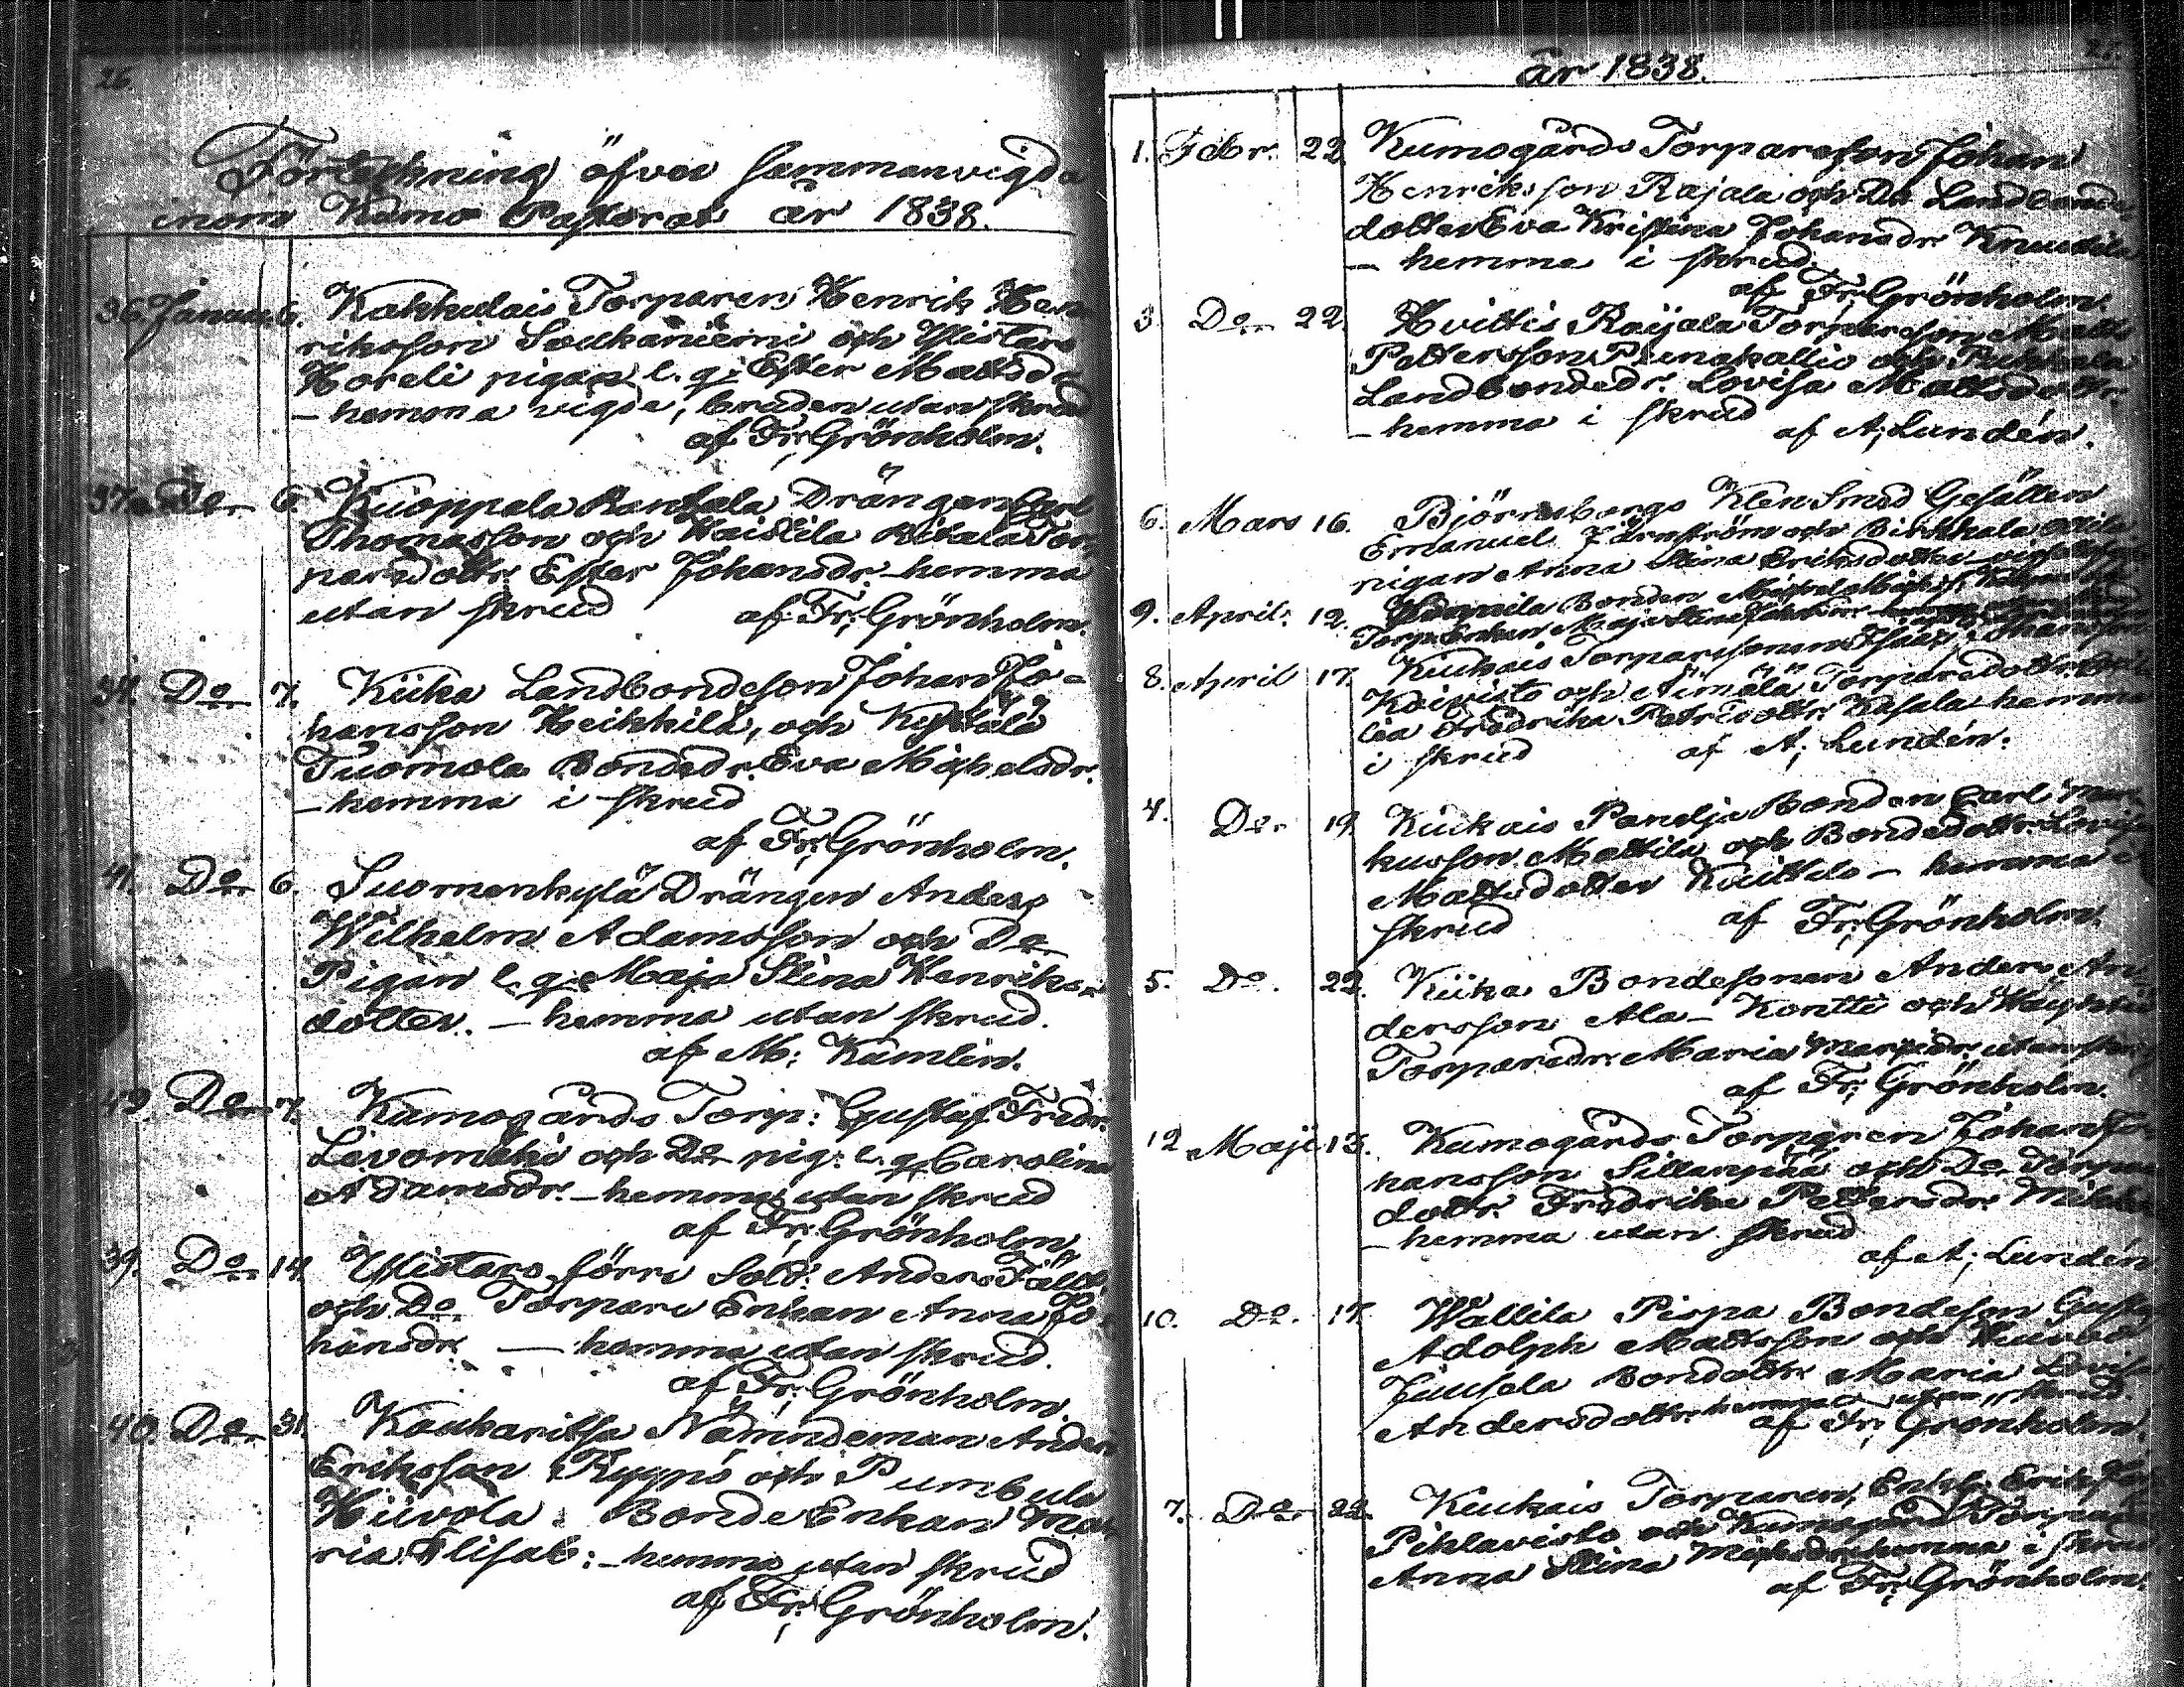 26.
Förtekning öfver Sammanvigda
inom Kumo Pastorat år 1838.
36. Januar. 6. Kakkulais Torparen Henrik Hen
riksson och Ylistaro
Horeli pigan l. q. Ester Mattsdr
– hemma vigde, bruden utan skrud
af Fr: Grönholm.
37. Do 6. Kuoppala Rantala Drängen Carl
Thomasson och Waistila Tor
paredottr. Ester Johansdr. hemma
utan skrud af Fr: Grönholm.
34. Do 7. Kiika Landbondeson Johan Jo=
hansson Heikkilä, och
Tuomola Bondedr. Eva Michelsdr.
– hemma i skrud
af Fr: Grönholm.
41. Do 6. Suomenkylä Drängen Anders
Wilhelm Adamsson och Do
Pigan l. q. Maja Stina Henriks
dotter. – hemma utan skrud.
af M: Kumlin.
42. Do 7. Kumogårds Torp: Gustaf Fredr.
Livomäki och Do pig: l. q. Carolina
Adamsdr. – hemma utan skrud
af Fr: Grönholm.
39. Do 14. Ylistaro förre Sold: Anders Fält
och Do Torpare Enkan Anna Jo
hansdr – hemma utan skrud.
af Fr: Grönholm.
40. Do 31. Koukaritsa Nämndeman Anders
Eriksson Ryypö och Pumbula
Hiivola Bonde Enkan Ma
ria Elisab: – hemma utan skrud
af Fr: Grönholm.
år 1838.
1. Febr. 22. Kumogårds Torpareson Johan
Henriksson Rajala och Do Landbonde
dotter Eva Kristina Johansdr. Knuutila
– hemma i skrud.
af Fr: Grönholm.
3. Do 22. Hvittis Raijala Torpareson Matts
Pettersson och
Landbondedr. Lovisa Mattsdottr.
– hemma i skrud af A: Lundén.
6. Mars 16. Björneborgs Klen Smed Gesällen
Emanuel Järnström och
pigan Anna Stina Eriksdotter
9. April. 12. Bonden
Torp. Enkan Maja Stina
8. April 17. Kiukais Torparesonen Isaac Johansson
Koivisto och Äimälä Torparedottr.
lia Fredrika hemma
i skrud af A: Lundén.
4. Do 19. Kiukais Panelja Bonden Carl Mar
kusson Mattila och Bondedottr. Lovisa
Mattsdotter – hemma i
skrud af Fr: Grönholm.
5. Do. 22. Kiika Bondesonen Anders An
dersson Ala-Kontti och
Torparedr. Maria utan skrud
af Fr: Grönholm.
12. Maji 13. Kumogårds Torparen Johan Jo
hansson Sillanpää och Do Torpare
dottr. Fredrika Pettersdr.
– hemma utan skrud
af A: Lundén
10. Do. 17. Wallila Pispa Bondeson Gustaf
Adolph Mattsson och
Juusela Bondedottr. Maria Lovisa
Andersdottr. hemma utan skrud.
af Fr: Grönholm.
7. Do 22. Kiukais Torparen, Enkl. Erik
Pihlavisto och Kumogård Torpare
Anna Stina hemma i skrud
af Fr: Grönholm.